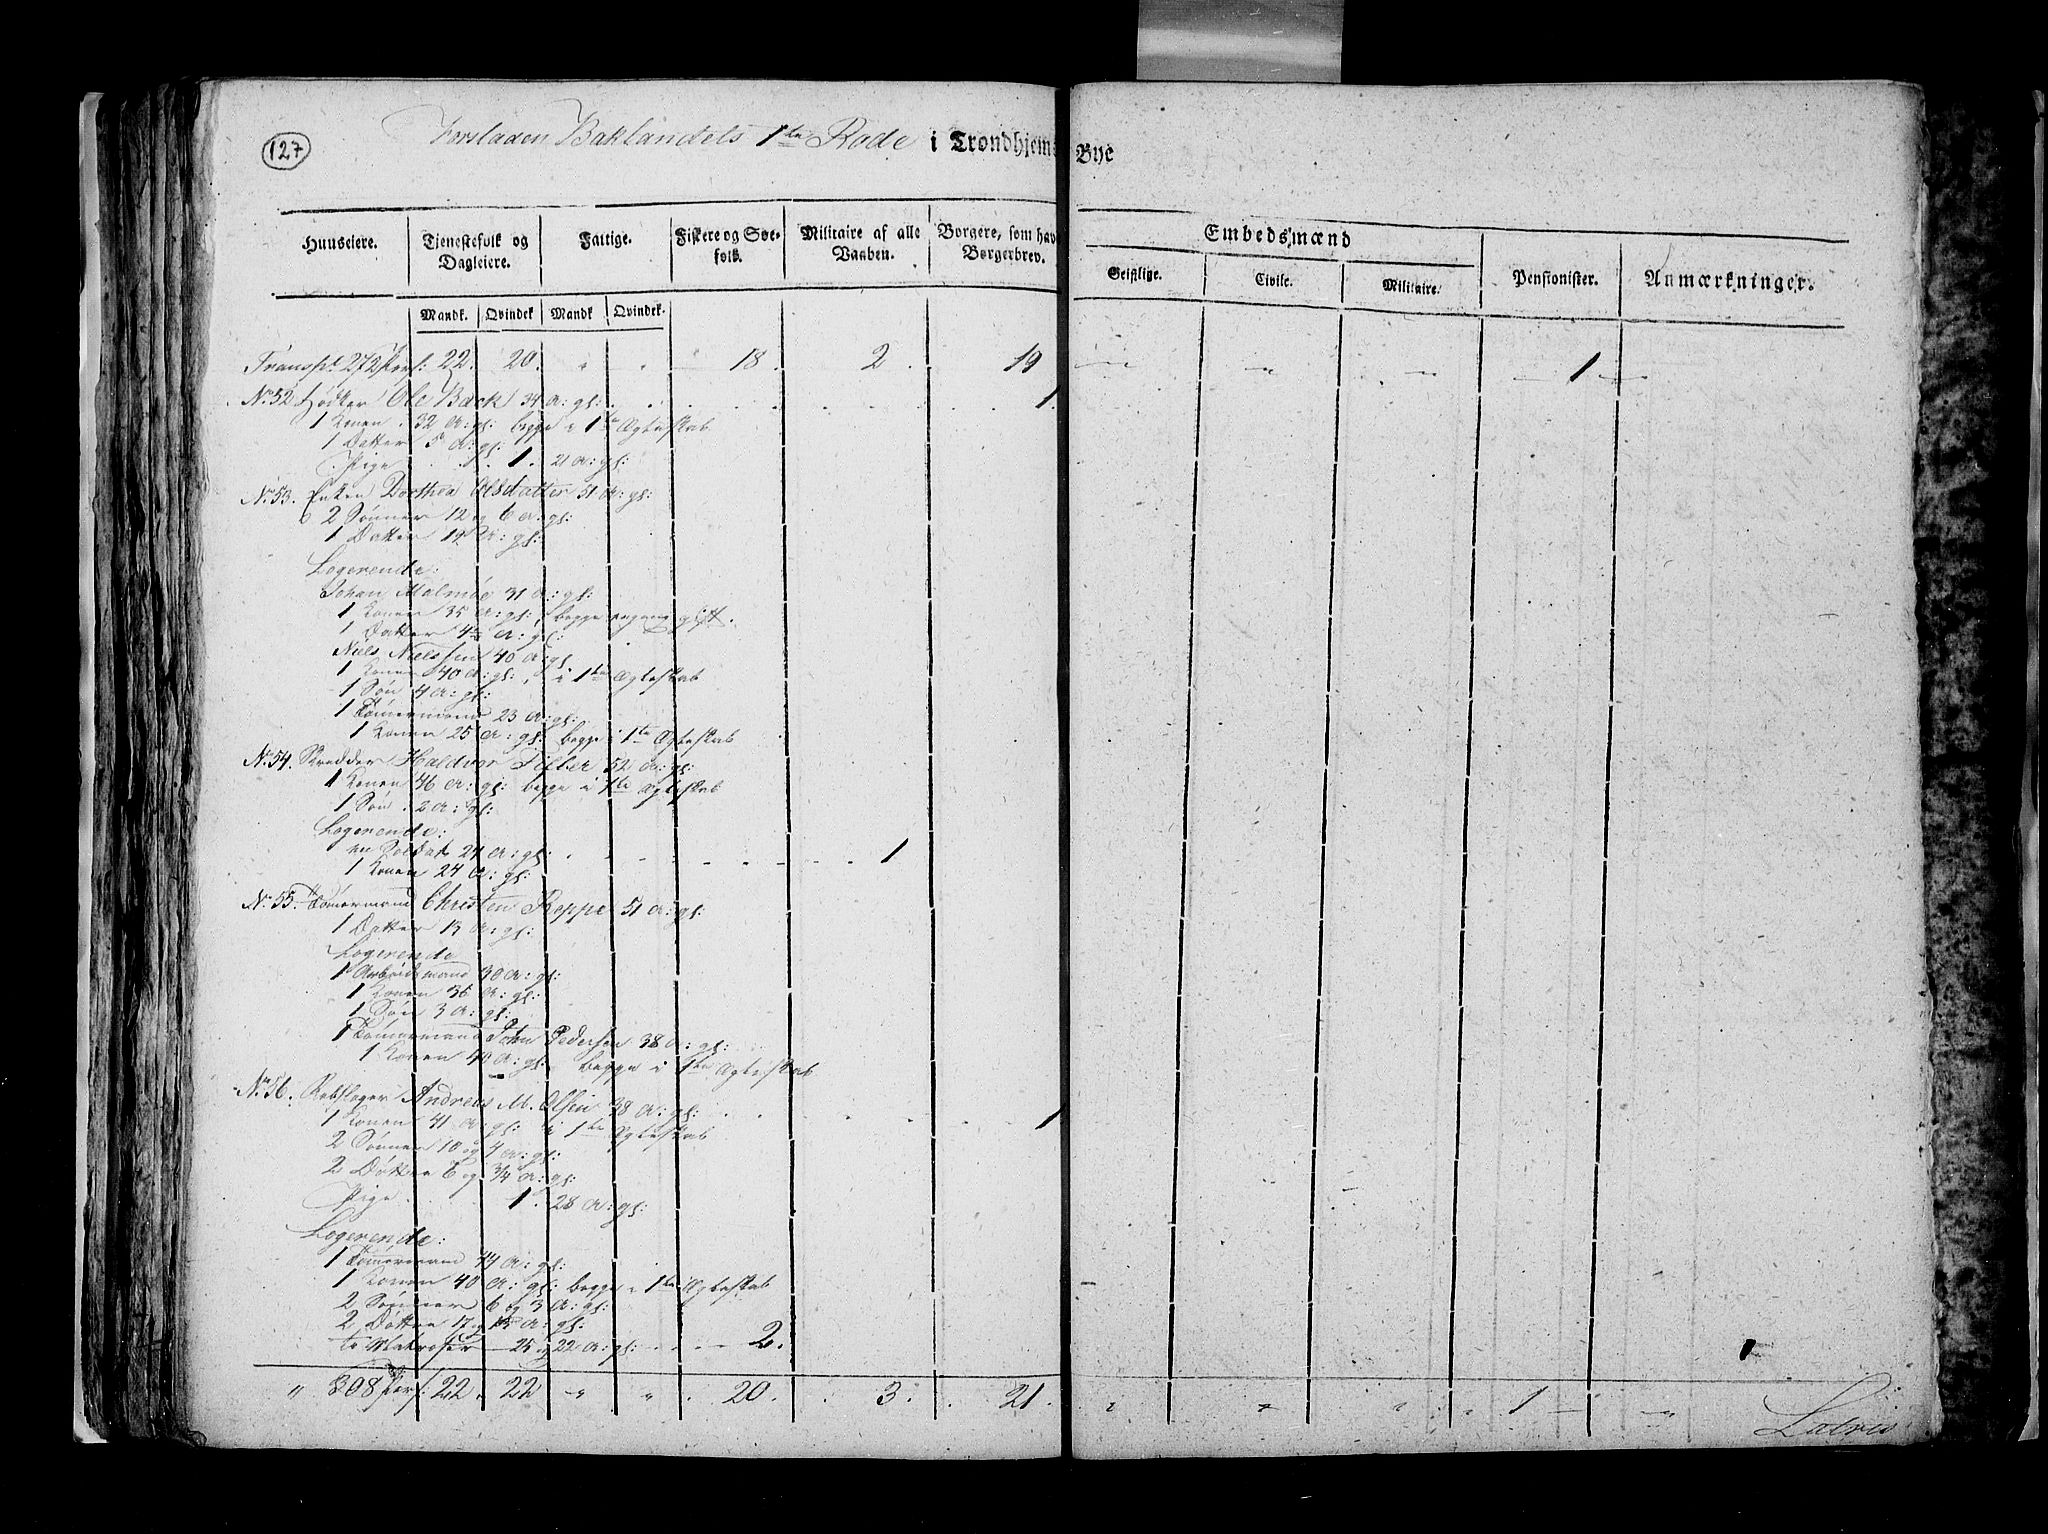 127
Forstaden Baklandets 1te Rode i Trondhjems Bye
Huuseiere. Tjenestefolk og Dagleiere. Fattige. Fiskere og Søefolk. Militaire af alle Vaaben. Borgere, som hav Borgerbrev. Embedsmænd Geistlige. Civile. Militaire. Pensionister. Anmærkninger.
Mandk. Qvindek Mandk Qvindek.
Transpt. 272 Pers: 22. 20. " " 18. 2. 19 " " " 1
No. 52 Høker Ole Back 34 A: gl: 1.
1 Konen . 32 A: gl: begge i 1te Ægteskab
1 Datter 5 A: gl:
Pige 1. 21 A: gl:
No. 53. Enken Dorthea Olsdatter 51 A: gl:
2 Sønner 12 og 6 A: gl:
1 Datter 19 A: gl:
Logerende:
Johan Malmöe 31 A: gl:
1 Konen 35 A: gl: begge engang gift.
1 Datter 4 A: gl:
Niels Nielssen 40 A: gl.
1 Konen 40 A: gl: i 1te Ægteskab
1 Søn 4 A: gl:
1 Tömermand 23 A: gl:
1 Konen 25 A: gl: begge i 1te Ægteskab
No. 54. Skredder Haldvor Fisker 52 A: gl:
1 Konen 46 A: gl: begge i 1te Ægteskab
1 Søn . 2 A: gl:
Logerende:
en Soldat 24 A: gl: 1
1 Konen 24 A: gl:
No. 55. Tömermand Christen Reppe 51 A: gl:
1 Datter 13 A: gl:
Logerende
1 Arbeidsmand 30 A: gl:
1 Konen 36 A: gl:
1 Søn 3 A: gl:
1 Tömermand John Pedersen 38 A: gl:
1 Konen 40 A: gl: begge i 1te Ægteskab
No. 56. Rebslager Andreas M. Olsen 38 A: gl: 1
1 Konen 41 A: gl: i 1te Ægteskab
2 Sønner 10 og 4 A: gl:
2 Døtter 6 og 3/4 A: gl:
Pige 1. 28 A: gl:
Logerende:
1 Tömermand 44 A: gl:
1 Konen 40 A: gl: begge i 1te Ægteskab
2 Sønner 6 og 3 A: gl:
2 Døttre 17 og 15 A: gl:
to Matroser 25 og 22 A: gl: 2.
" 308 Pers: 22. 22 " " 20. 3. 21. " " " 1 "
Latris